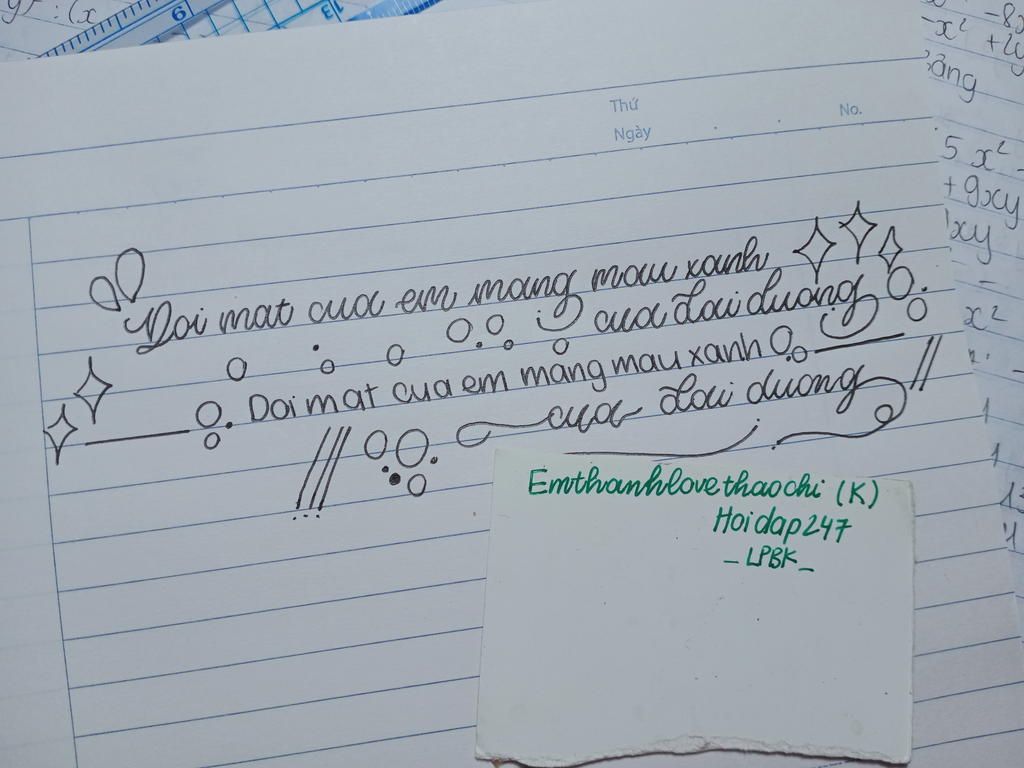 y) : (x
9
13
Thứ
Ngày
No.
Doi mat cua em mang mau xanh
cua dai duong
Doi mat cua em mang mau xanh
cua dai duong
Emthanhlovethaochi (K)
Hoidap247
_LPBK_
-x² + 2y
bằng
5x²
+ 9xy
xy
x²
1
1